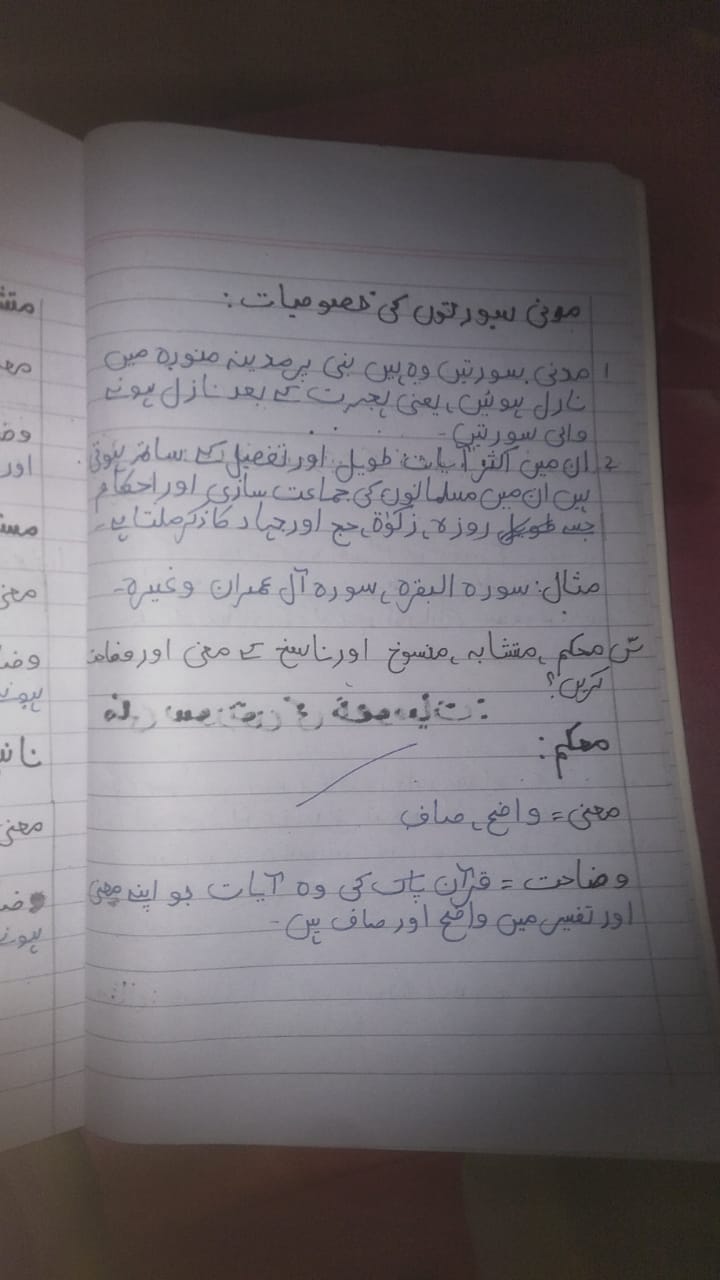 مدنی سورتوں کی خصوصیات:
1 مدنی سورتیں وہ ہیں نبی پر مدینہ منورہ میں
نازل ہوئیں، یعنی ہجرت کے بعد نازل ہونے
والی سورتیں۔
2 ان میں اکثر آیات طویل اور تفصیل کے ساتھ ہوتی
ہیں ان میں مسلمانوں کی جماعت سازی اور احکام
جسے روزہ، زکوٰۃ، حج اور جہاد کا ذکر ملتا ہے۔
مثال: سورہ البقرہ، سورہ آل عمران وغیرہ۔
س محکم، متشابہ، منسوخ اور ناسخ کے معنی اور
کریں؟
محکم:
معنی = واضح، صاف
وضاحت = قرآن پاک کی وہ آیات جو اپنے معنی
اور تفسیر میں واضح اور صاف ہیں۔